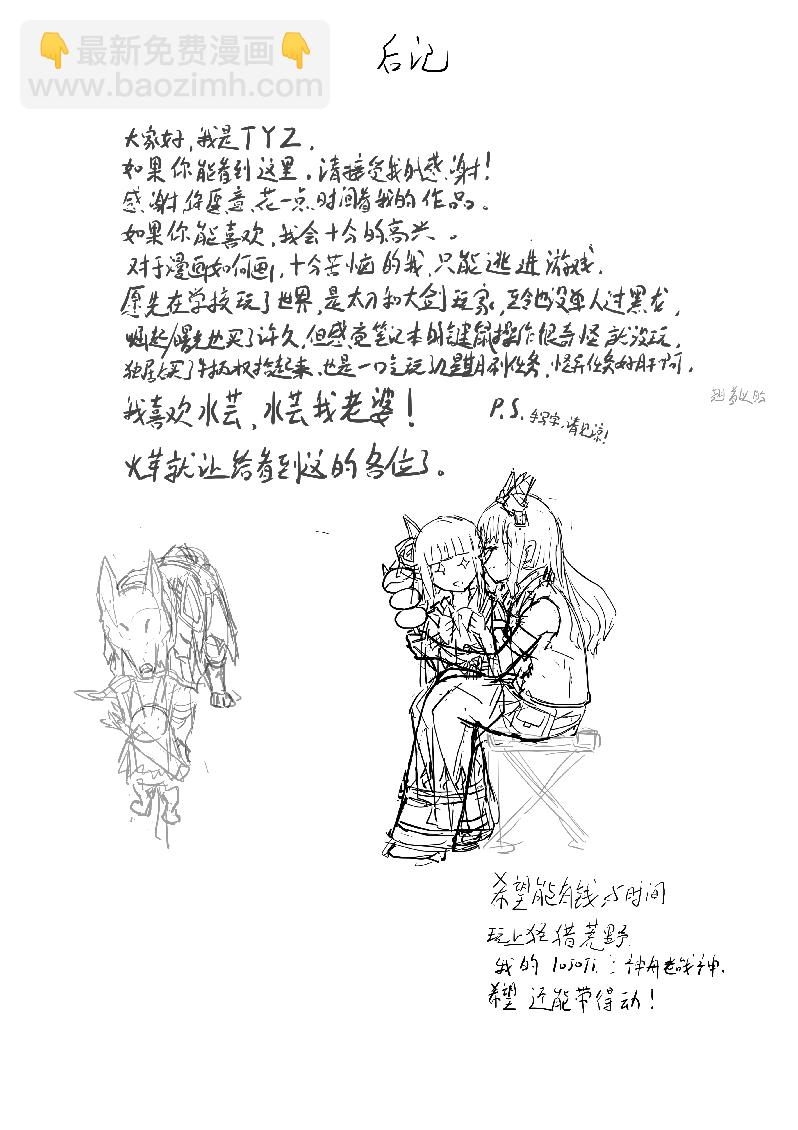 👇最新免费漫画👇
www.baozimh.com
后记
大家好,我是TYZ.
如果你能看到这里,请接受我的感谢!
感谢你愿意花一点时间看我的作品。
如果你能喜欢,我会十分的高兴。
对于漫画如何画,十分苦恼的我,只能逃进游戏.
原先在学校玩了世界,是太刀和大剑玩家,至今也没单人过黑龙,
崛起/曙光也买了许久,但感觉笔记本的键鼠操作很奇怪就没玩,
独居买了手柄权捡起来,也是一口气玩,怪异任务好肝啊.
我喜欢水芸,水芸我老婆!
P.S. 手写字,请见谅!
火芽就让给看到这的各位了。
希望能有钱与时间
玩上狂猎荒野
我的1050Ti:神舟老战神.
希望还能带得动!